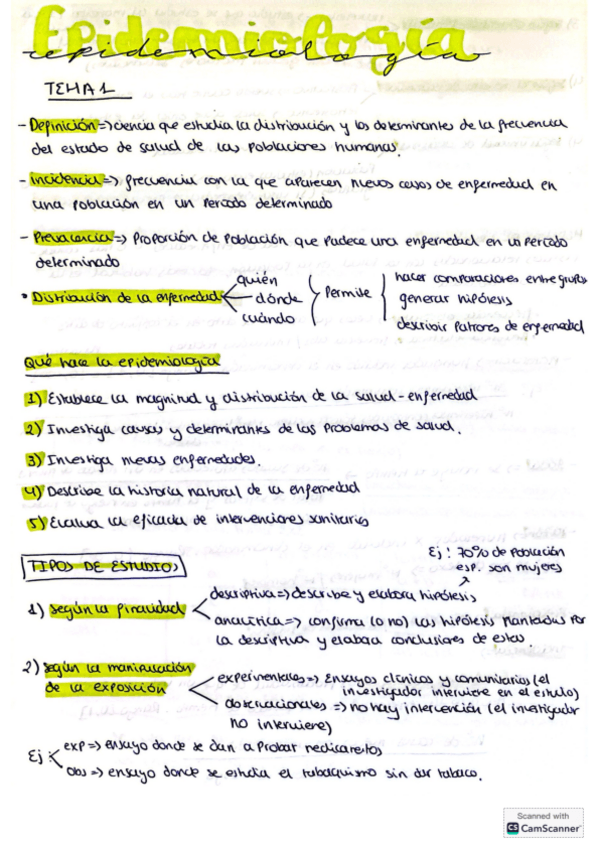 Epidemiología
epidemiología
TEMA 1
- Definición => ciencia que estudia la distribución y los determinantes de la frecuencia
del estado de salud de las poblaciones humanas.
- Incidencia => frecuencia con la que aparecen nuevos casos de enfermedad en
una población en un periodo determinado
- Prevalencia => Proporción de población que padece una enfermedad en un periodo
determinado
• Distribución de la enfermedad
quién
dónde
cuándo
Permite
hacer comparaciones entre grupos
generar hipótesis
describir patrones de enfermedad
Qué hace la epidemiología
1) Establece la magnitud y distribución de la salud - enfermedad
2) Investiga causas y determinantes de los problemas de salud.
3) Investiga nuevas enfermedades.
4) Describe la historia natural de la enfermedad
5) Evalua la eficacia de intervenciones sanitarias
TIPOS DE ESTUDIOS
Ej: 70% de población
esp. son mujeres
1) Según la finalidad
descriptiva => describe y elabora hipótesis
analítica => confirma (o no) las hipótesis planteadas por
la descriptiva y elabora conclusiones de estas.
2) Según la manipulación
de la exposición
experimentales => Ensayos clínicos y comunitarios (el
investigador interviene en el estudio)
observacionales => no hay intervención (el investigador
no interviene)
Ej
exp => ensayo donde se dan a probar medicamentos
obs => ensayo donde se estudia el tabaquismo sin dar tabaco.
Scanned with
CS CamScanner